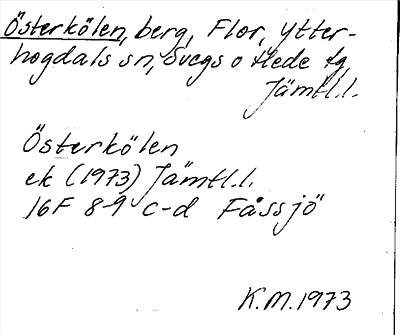 Österkölen, berg, Flor, Ytter-
hogdals sn, Svegs o Hede tg,
Jämtl.l.
Österkölen
ek (1973) Jämtl.l.
16F 8-9 c-d Fåssjö
K.M.1973